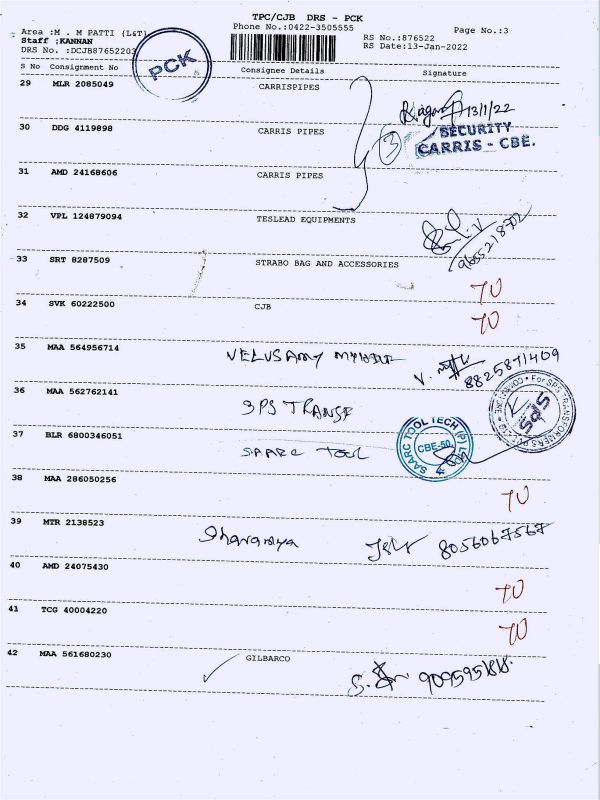 TPC/CJB DRS - PCK
Area :M . M PATTI (L&T)
Phone No.:0422-3505555
Page No.:3
Staff :KANNAN
RS No.:876522
DRS No. :DCJB87652203
RS Date:13-Jan-2022
PCK
S No Consignment No Consignee Details Signature
29 MLR 2085049 CARRISPIPES
13/1/22
30 DDG 4119898 CARRIS PIPES
3
SECURITY
CARRIS - CBE.
31 AMD 24168606 CARRIS PIPES
32 VPL 124879094 TESLEAD EQUIPMENTS
9655218702
33 SRT 8287509 STRABO BAG AND ACCESSORIES
70
34 SVK 60222500 CJB
70
35 MAA 564956714 VELUSAMY
8825871409
36 MAA 562762141 SPS TRANSF
SPS
37 BLR 6800346051 SAARC TOOL
SAARC TOOL TECH (P) LTD
CBE-50
38 MAA 286050256
70
39 MTR 2138523 8056067567
40 AMD 24075430
70
41 TCG 40004220
70
42 MAA 561680230 GILBARCO